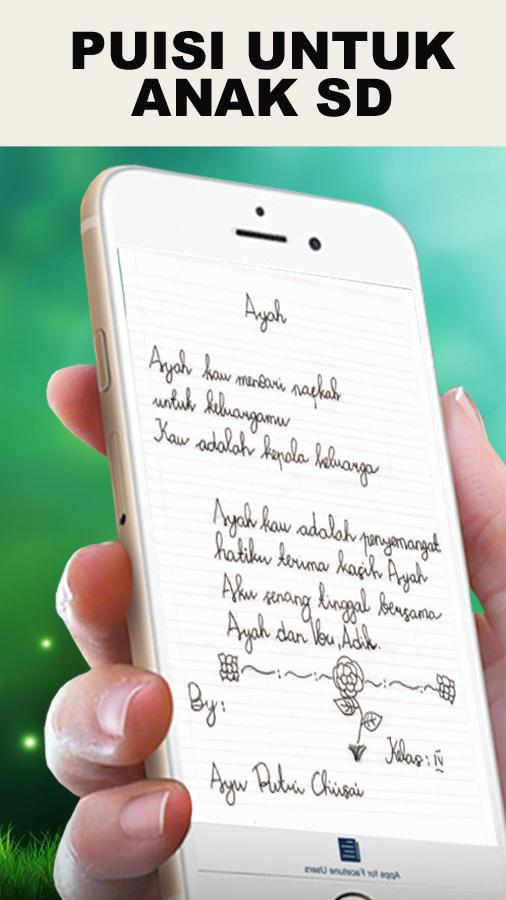 PUISI UNTUK
ANAK SD
Ayah
Ayah kau mencari nafkah
untuk keluargamu
Kau adalah kepala keluarga
Ayah kau adalah penyemangat
hatiku terima kasih Ayah
Aku senang tinggal bersama
Ayah dan Ibu, Adik.
By:
Kelas: IV
Ayu Putri
Apps for Facetune Users